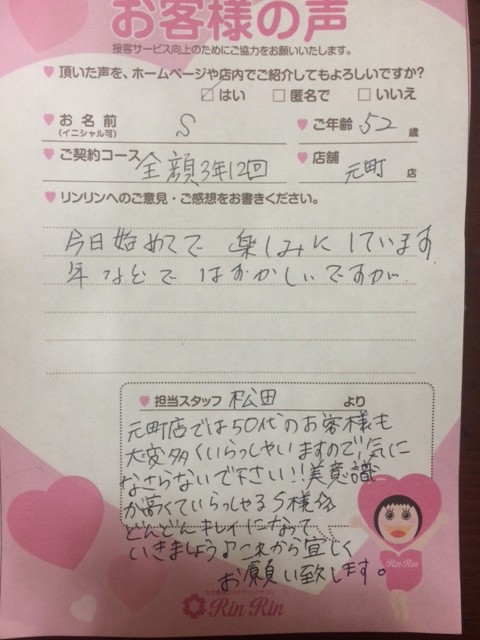 お客様の声
接客サービス向上のためにご協力をお願いいたします。
♥ 頂いた声を、ホームページや店内でご紹介してもよろしいですか?
☑ はい □ 匿名で □ いいえ
♥ お名前 (イニシャル可) S ♥ ご年齢 52 歳
♥ ご契約コース 全顔3年12回 ♥ 店舗 元町 店
♥ リンリンへのご意見・ご感想をお書きください。
今日始めてで 楽しみにしています
年などで はずかしいですが…
♥ 担当スタッフ 松田 より
元町店では50代のお客様も
大変多くいらっしゃいますので気に
なさらないで下さい!!美意識
が高くていらっしゃるS様
どんどんキレイになって
いきましょう♪これから宜しく
お願い致します。
Rin Rin
Rin Rin